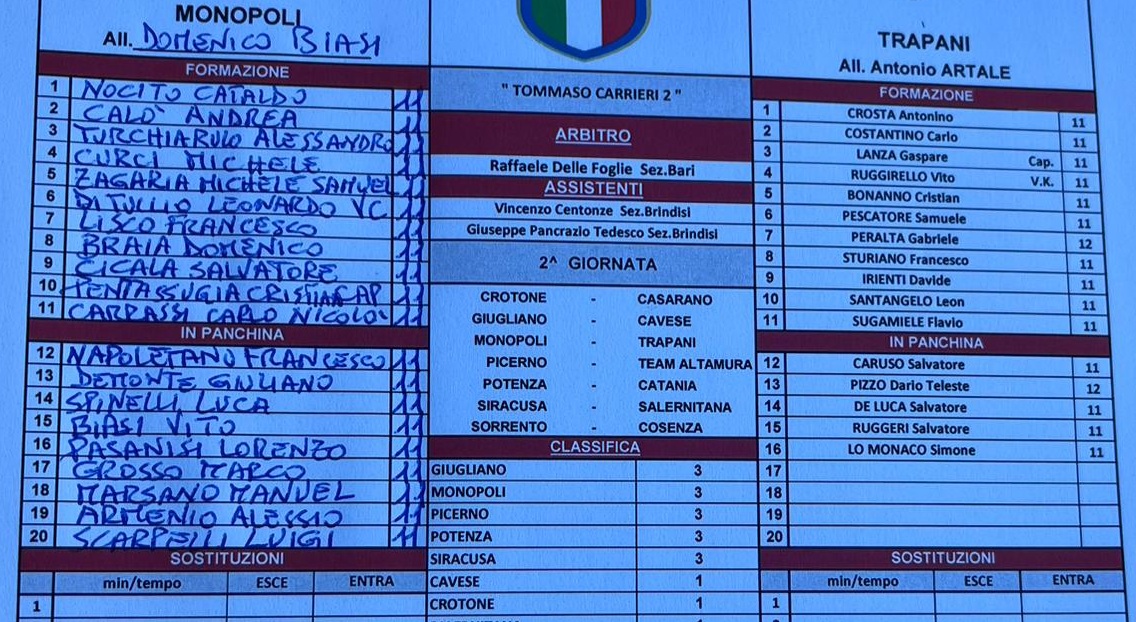 MONOPOLI
All. DOMENICO BIASI
FORMAZIONE
1 NOCITO CATALDO 11
2 CALO' ANDREA 11
3 TURCHIARULO ALESSANDRO 11
4 CURCI MICHELE 11
5 ZAGARIA MICHELE SAMUEL 11
6 DITULLIO LEONARDO VC 11
7 LISCO FRANCESCO 11
8 BRAIA DOMENICO 11
9 CICALA SALVATORE 11
10 PENTASSUGIA CRISTIAN CAP 11
11 CARPASSI CARLO NICOLO' 11
IN PANCHINA
12 NAPOLETANO FRANCESCO 11
13 DEMONTE GIULIANO 11
14 SPINELLI LUCA 11
15 BIASI VITO 11
16 PASANISI LORENZO 11
17 GROSSO MARCO 11
18 MARSANO MANUEL 11
19 ARMENIO ALESSIO 11
20 SCARPELLI LUIGI 11
SOSTITUZIONI
min/tempo ESCE ENTRA
1
" TOMMASO CARRIERI 2 "
ARBITRO
Raffaele Delle Foglie Sez.Bari
ASSISTENTI
Vincenzo Centonze Sez.Brindisi
Giuseppe Pancrazio Tedesco Sez.Brindisi
2^ GIORNATA
CROTONE - CASARANO
GIUGLIANO - CAVESE
MONOPOLI - TRAPANI
PICERNO - TEAM ALTAMURA
POTENZA - CATANIA
SIRACUSA - SALERNITANA
SORRENTO - COSENZA
CLASSIFICA
GIUGLIANO 3
MONOPOLI 3
PICERNO 3
POTENZA 3
SIRACUSA 3
CAVESE 1
CROTONE 1
TRAPANI
All. Antonio ARTALE
FORMAZIONE
1 CROSTA Antonino 11
2 COSTANTINO Carlo 11
3 LANZA Gaspare Cap. 11
4 RUGGIRELLO Vito V.K. 11
5 BONANNO Cristian 11
6 PESCATORE Samuele 11
7 PERALTA Gabriele 12
8 STURIANO Francesco 11
9 IRIENTI Davide 11
10 SANTANGELO Leon 11
11 SUGAMIELE Flavio 11
IN PANCHINA
12 CARUSO Salvatore 11
13 PIZZO Dario Teleste 12
14 DE LUCA Salvatore 11
15 RUGGERI Salvatore 11
16 LO MONACO Simone 11
17
18
19
20
SOSTITUZIONI
min/tempo ESCE ENTRA
1